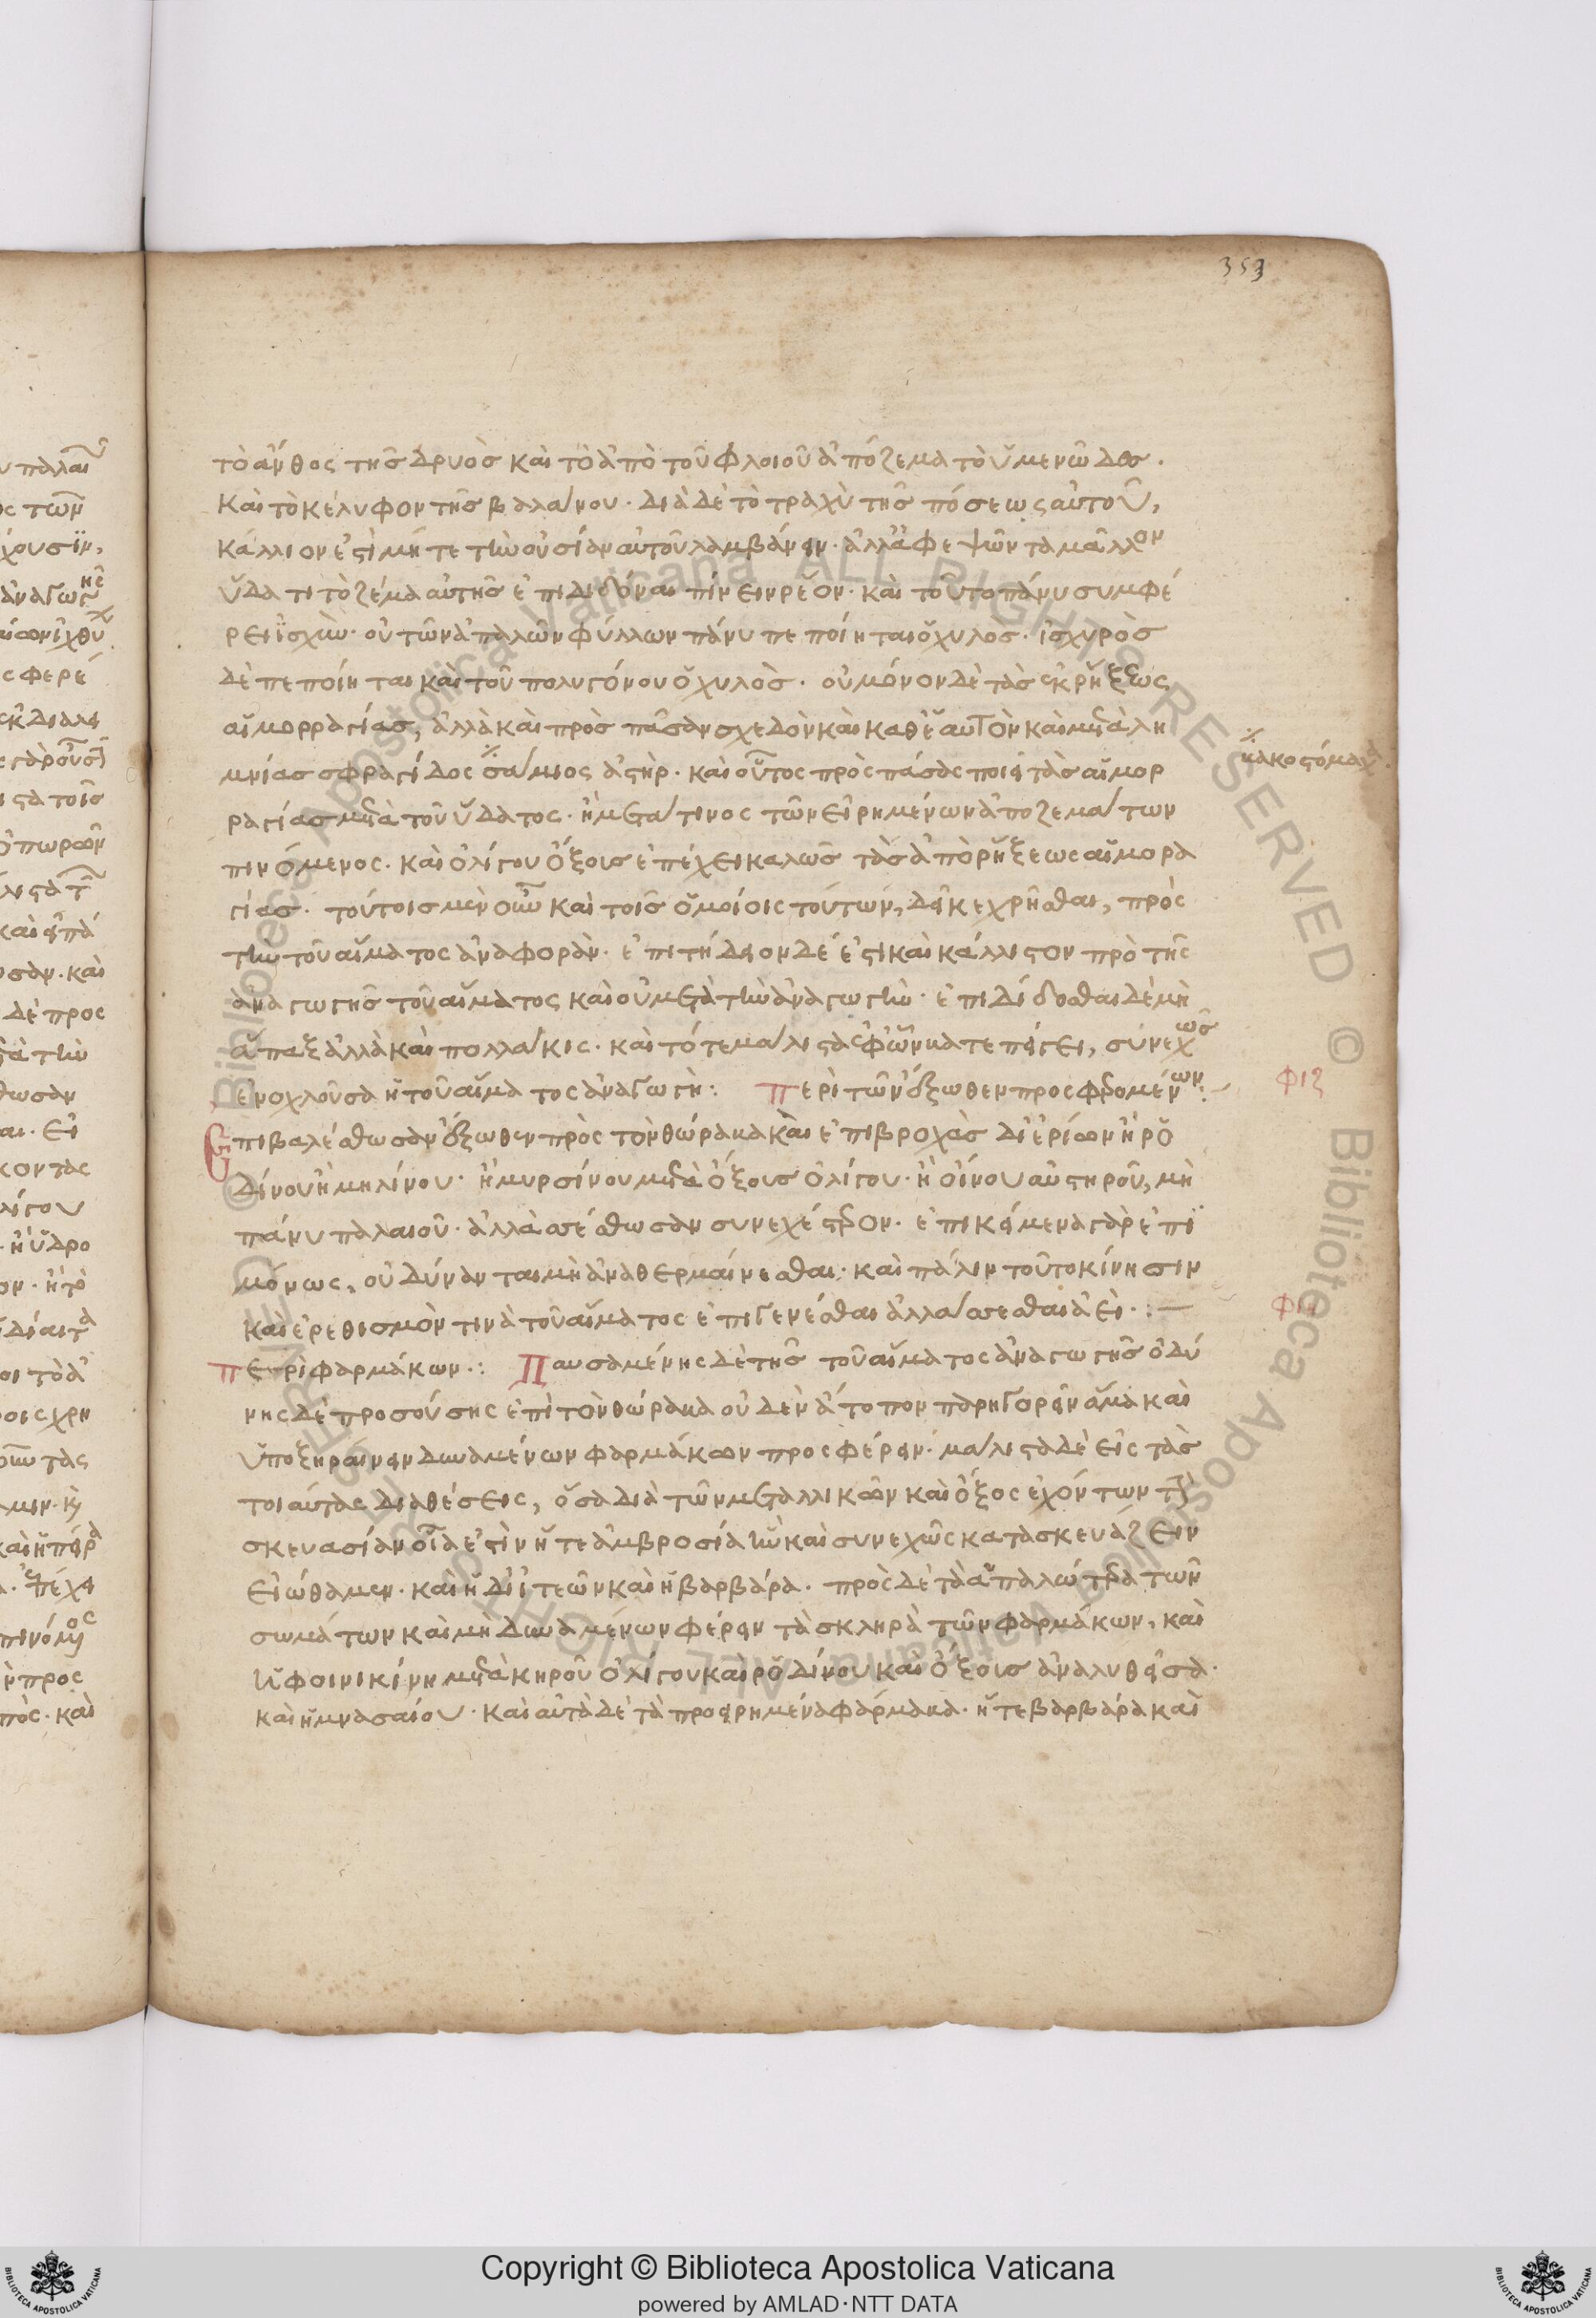 353
τὸ ἄνθος τῆς δρυὸς καὶ τὸ ἀπὸ τοῦ φλοιοῦ ἀπόζεμα τὸ ὑμενῶδες.
καὶ τὸ κέλυφον τῆς βαλάνου· διὰ δὲ τὸ τραχὺ τῆς πόσεως αὐτοῦ,
κάλλιον ἐστὶ μήτε τὴν οὐσίαν αὐτοῦ λαμβάνειν· ἀλλ' ἀφεψῶντα μᾶλλον
ὕδατι τὸ ζέμα αὐτῆς ἐπιδιδόναι πίνειν ῥέον· καὶ τοῦτο πάνυ συμφέ
ρει ἰσχὺν· οὐ τῶν ἁπαλῶν φύλλων πάνυ πεποίηται ὁ χυλος· ἰσχυρὸς
δὲ πεποίηται καὶ τοῦ πολυγόνου ὁ χυλὸς· οὐ μόνον δὲ τὰς ἐκ ῥήξεως
αἱμορραγίας, ἀλλὰ καὶ πρὸς πᾶσαν σχεδὸν καὶ καθ' ἑαυτὸν καὶ μετὰ λη
μνίας σφραγίδος σάμιος ἀστὴρ· καὶ οὗτος πρὸς πάσας ποιεῖ τὰς αἱμορ
ραγίας μετὰ τοῦ ὕδατος· ἢ μετά τινος τῶν εἰρημένων ἀποζεμάτων
πινόμενος· καὶ ὀλίγου ὄξους ἐπέχει καλῶς τὰς ἀπὸ ῥήξεως αἱμορα
γίας· τούτοις μὲν οὖν καὶ τοῖς ὁμοίοις τούτων, δεῖ κεχρῆσθαι, πρὸς
τὴν τοῦ αἵματος ἀναφορὰν· ἐπιτήδειον δέ ἐστι καὶ κάλλιστον πρὸ τῆς
ἀναγωγῆς τοῦ αἵματος καὶ οὐ μετὰ τὴν ἀναγωγὴν· ἐπιδίδοσθαι δὲ μὴ
ἅπαξ ἀλλὰ καὶ πολλάκις· καὶ τότε μάλιστα ἐφ' ὧν κατεπείγει, συνεχῶς
ἐνοχλοῦσα ἡ τοῦ αἵματος ἀναγωγὴ: Περὶ τῶν ἔξωθεν προσφερομένων:
Ἐπιβαλέσθωσαν ἔξωθεν πρὸς τὸν θώρακα καὶ ἐπιβροχὰς δι' ἐρίων ἢ ῥο
δίνου ἢ μηλίνου· ἢ μυρσίνου μετὰ ὄξους ὀλίγου· ἢ οἴνου αὐστηροῦ, μὴ
πάνυ παλαιοῦ· ἀλλασσέσθωσαν συνεχέστερον· ἐπικείμενα γὰρ ἐπι
μόνως, οὐ δύνανται μὴ ἀναθερμαίνεσθαι· καὶ πάλιν τοῦτο κίνησιν
καὶ ἐρεθισμόν τινὰ τοῦ αἵματος ἐπιγενέσθαι ἀλλάσσεσθαι ἀεὶ·:—
Περὶ φαρμάκων·: Παυσαμένης δὲ τῆς τοῦ αἵματος ἀναγωγῆς ὀδύ
νης δὲ προσούσης ἐπὶ τὸν θώρακα οὐδὲν ἄτοπον παρηγορεῖν ἅμα καὶ
ὑποξηραίνειν δυναμένων φαρμάκων προσφέρειν· μάλιστα δὲ εἰς τὰς
τοιαύτας διαθέσεις, ὅσα διὰ τῶν μεταλλικῶν καὶ ὄξος ἐχόντων τὴν
σκευασίαν οἷά ἐστὶν ἥ τε ἀμβροσία ἣν καὶ συνεχῶς κατασκευάζειν
εἰώθαμεν· καὶ ἡ δι' ἰτεῶν καὶ ἡ βαρβάρα· πρὸς δὲ τὰ ἁπαλώτερα τῶν
σωμάτων καὶ μὴ δυναμένων φέρειν τὰ σκληρὰ τῶν φαρμάκων, καὶ
ἡ φοινικίνη μετὰ κηροῦ ὀλίγου καὶ ῥοδίνου καὶ ὄξους ἀναλυθεῖσα·
καὶ ἡ μνασαίου· καὶ αὐτὰ δὲ τὰ προειρημένα φάρμακα· ἥ τε βαρβάρα καὶ
φιζ
φιη
Copyright © Biblioteca Apostolica Vaticana
powered by AMLAD·NTT DATA